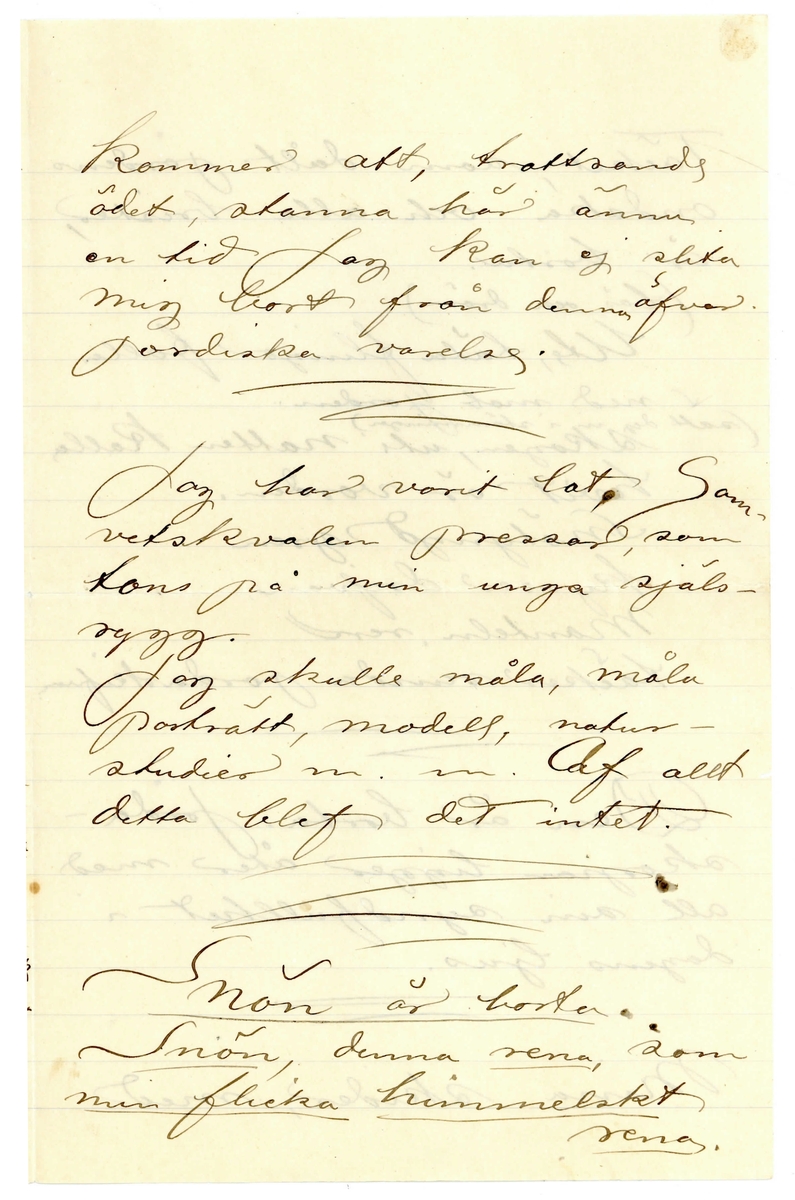 kommer att, trottsande
ödet, stanna här ännu
en tid Jag kan ej slita
mig bort från denna öfver
jordiska varelse.
Jag har varit lat, Sam-
vetskvalen pressar, som
tons på min unga själs-
rygg.
Jag skulle måla, måla
porträtt, modell, natur-
studier m. m. Af allt
detta blef det intet.
Snön är borta.
Snön, denna rena, som
min flicka himmelskt
rena.